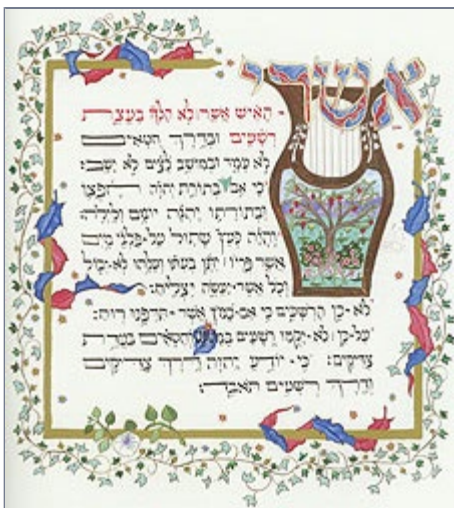 אשרי
האיש אשר לא הלך בעצת
רשעים ובדרך חטאים
לא עמד ובמושב לצים לא ישב:
כי אם בתורת יהוה חפצו
ובתורתו יהגה יומם ולילה:
והיה כעץ שתול על־פלגי מים
אשר פריו יתן בעתו ועלהו לא־יבול
וכל אשר־יעשה יצליח:
לא־כן הרשעים כי אם־כמץ אשר־תדפנו רוח:
על־כן לא־יקמו רשעים במשפט וחטאים בעדת
צדיקים: כי־יודע יהוה דרך צדיקים
ודרך רשעים תאבד: